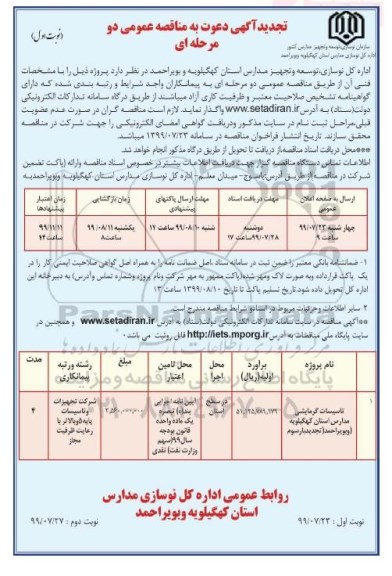 تجدیدآگهی دعوت به مناقصه عمومی دو مرحله ای
(نوبت اول)
سازمان نوسازی،توسعه وتجهیز مدارس کشور
اداره کل نوسازی مدارس استان کهگیلویه وبویراحمد
اداره کل نوسازی،توسعه وتجهیز مدارس استان کهگیلویه و بویراحمد در نظر دارد پروژه ذیل را با مشخصات
فنی آن از طریق مناقصه عمومی دو مرحله ای به پیمانکاران واجد شرایط و رتبه بندی شده که دارای
گواهینامه تشخیص صلاحیت معتبر و ظرفیت کاری آزاد میباشند از طریق درگاه سامانه تدارکات الکترونیکی
دولت(ستاد) به آدرس www.setadiran.ir واگذار نماید. لازم است مناقصه گران در صورت عدم عضویت
قبلی،مراحل ثبت نام در سایت مذکور ودریافت گواهی امضای الکترونیکی را جهت شرکت در مناقصه
محقق سازند. تاریخ انتشار فراخوان مناقصه در سامانه ۱۳۹۹/۰۷/۲۳ میباشد.
***محل دریافت اسناد مناقصه/از دریافت تا تحویل از طریق درگاه مذکور انجام خواهد شد.
اطلاعات تماس دستگاه مناقصه گزار جهت دریافت اطلاعات بیشتر در خصوص اسناد مناقصه وارائه (پاکت تضمین
شرکت در مناقصه از طریق آدرس:یاسوج-میدان معلم- اداره کل نوسازی مدارس استان کهگیلویه وبویراحمد)به
ارسال به صفحه اعلان عمومی | مهلت دریافت اسناد | مهلت ارسال پاکتهای پیشنهادی | زمان بازگشایی | زمان اعتبار پیشنهادها
چهار شنبه ۹۹/۰۷/۲۳ ساعت ۹ | دوشنبه ۹۹/۰۷/۲۸ ساعت ۱۷ | شنبه ۹۹/۰۸/۱۰ ساعت ۱۷ | یکشنبه ۹۹/۰۸/۱۱ ساعت ۸ | ۹۹/۱۱/۱۱ ساعت ۲۴
۱- ضمانتنامه بانکی معتبر را ضمن ثبت در سامانه ستاد ،اصل ضمانت نامه را به همراه اصل گواهی صلاحیت ایمنی کار را در
یک پاکت قرارداده وبه صورت لاک ومهر شده(پاکت ممهور به مهر شرکت ونام پروژه وشماره تماس وآدرس) به دبیرخانه این
اداره کل تحویل داده شود.تاریخ تسلیم پاکت تا تاریخ ۱۳۹۹/۰۸/۱۰ ساعت ۱۳
۲ سایر اطلاعات وجزئیات مربوط در اسنادو شرایط مناقصه مندرج است.
**آگهی مناقصه در سایت سامانه تدارکات الکترونیکی دولت(ستاد) به آدرس www.setadiran.ir و همچنین در
سایت پایگاه ملی مناقصات به آدرس http://iets.mporg.ir قابل رویت می باشد.
نام پروژه | برآورد اولیه(ریال) | محل اجرا | محل تامین اعتبار | مبلغ | رشته ورتبه پیمانکاری | مدت
۱ | تاسیسات گرمایشی مدارس استان کهگیلویه وبویراحمد(تجدیدبارسوم) | در سطح استان | آیین نامه اجرایی بند(ه) تبصره یک ماده واحده قانون بودجه سال۹۹(سهم وزارت نفت) نقدی | شرکت تجهیزات وتاسیسات پایه ۵وبالاتر با رعایت ظرفیت مجاز | ۴
روابط عمومی اداره کل نوسازی مدارس
استان کهگیلویه وبویراحمد
نوبت اول : ۹۹/۰۷/۲۳
نوبت دوم : ۹۹/۰۷/۲۷